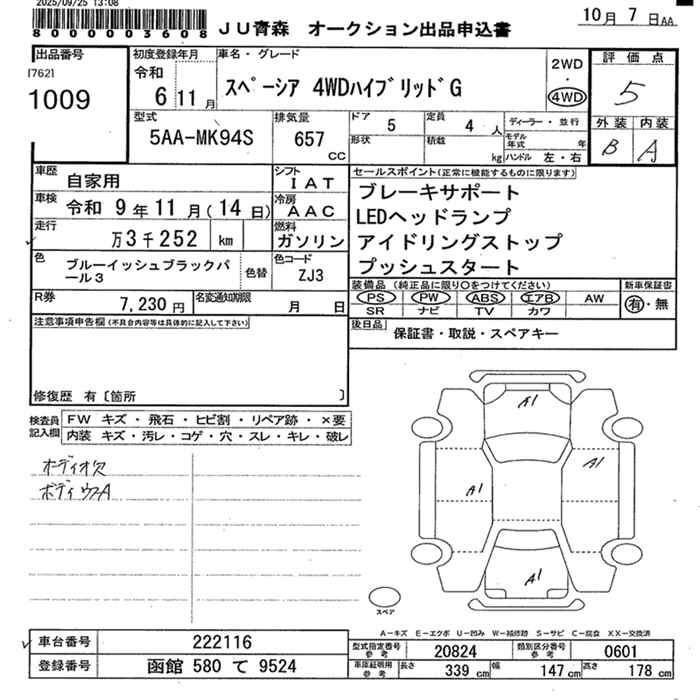 2025/09/25 13:08
8000003608
JU青森 オークション出品申込書
10月 7 日AA
出品番号
[762]
1009
初度登録年月
令和
6 11 月
車名・グレード
スペーシア 4WDハイブリッドG
2WD
・
4WD
評価点
5
外装 内装
B A
型式
5AA-MK94S
排気量
657
CC
ドア 5
定員 4 人
ディーラー・並行
形状
積載 kg
モデル年式 年
ハンドル 左・右
車歴 自家用
シフト IAT
車検 令和 9 年 11 月 ( 14 日)
冷房 AAC
走行 万 3 千 252 km
燃料 ガソリン
色 ブルーイッシュブラックパール3
色替
色コード ZJ3
R券 7,230 円
名変通知期限 月 日
セールスポイント(正常に機能するものに限ります)
ブレーキサポート
LEDヘッドランプ
アイドリングストップ
プッシュスタート
装備品 (純正品に限り○をつけてください)
PS PW ABS エアB AW
SR ナビ TV カワ
新車保証書
有・無
後日品 保証書・取説・スペアキー
注意事項申告欄 (不具合内容等は具体的に記入して下さい)
修復歴 有〔箇所 〕
検査員記入欄
FW キズ ・ 飛石 ・ ヒビ割 ・ リペア跡 ・ ×要
内装 キズ ・ 汚レ ・ コゲ ・ 穴 ・ スレ ・ キレ ・ 破レ
オーディオ欠
A1
A1
A1
A1
スペア
A-キズ E-エクボ U-凹み W-補修跡 S-サビ C-腐食 XX-交換済
車台番号 222116
登録番号 函館 580 て 9524
型式指定番号 参考 20824
類別区分番号 参考 0601
車庫証明用 参考 長さ 339 cm 幅 147 cm 高さ 178 cm